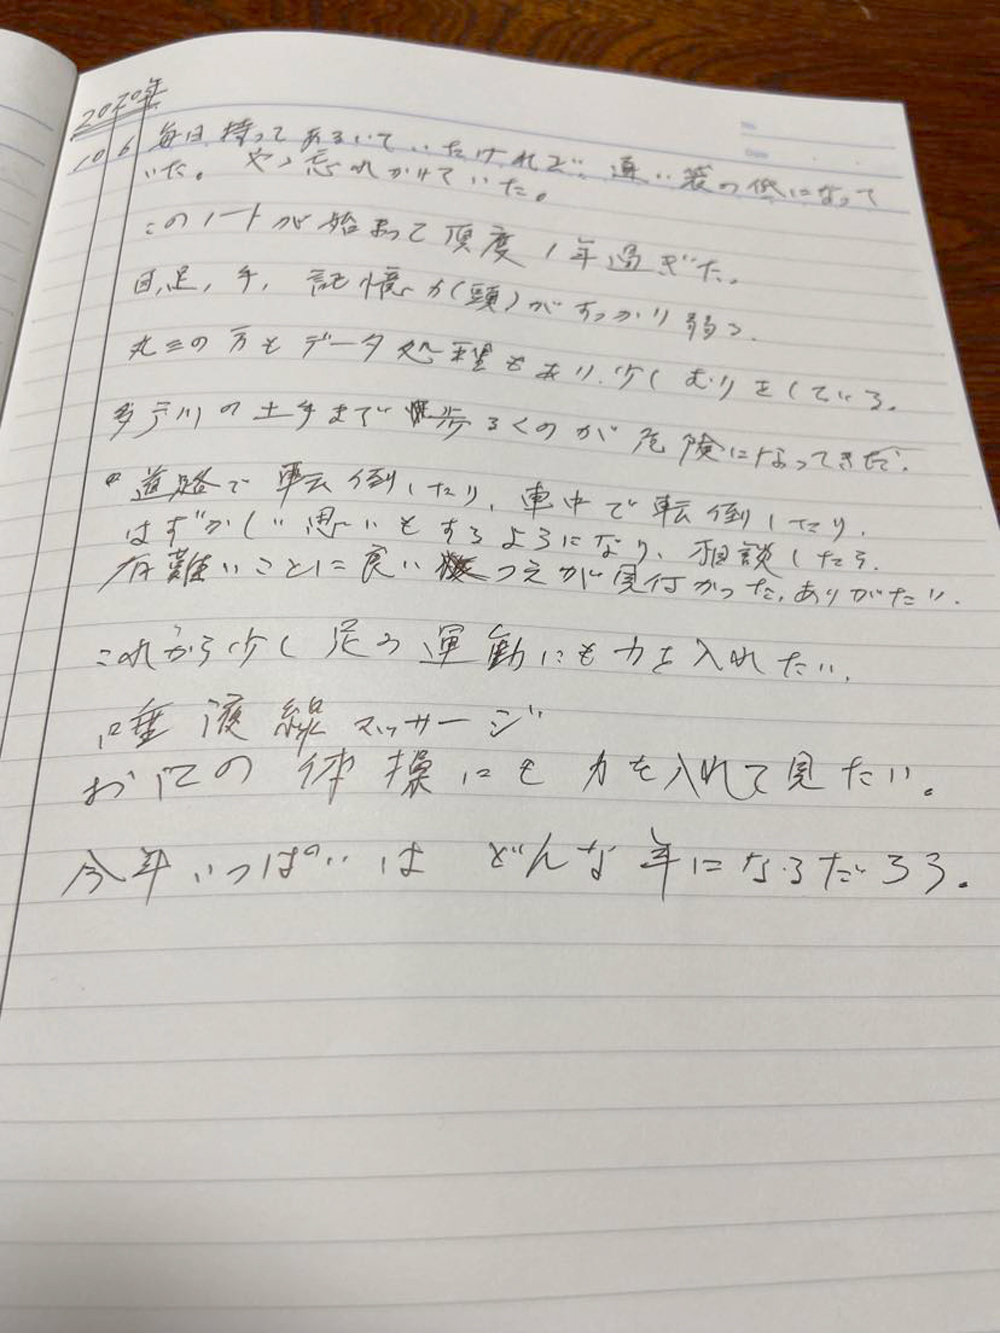 2020年
10 6 毎日持ってあるいていたけれど、重い袋の底になって
いた。やゝ忘れかけていた。
このノートが始まって頂度1年過ぎた。
目,足,手,記憶力(頭)がすっかり弱る.
丸三の方もデータ処理もあり.少しむりをしている.
の土手まで歩るくのが危険になってきた.
道路で転倒したり,車中で転倒したり,
はずかしい思いもするようになり,相談したら.
有難いことに良い つえが見付かった.ありがたい.
これから少し足の運動にも力を入れたい.
唾液線マッサージ
おにの体操にも力を入れて見たい。
今年いっぱいはどんな年になるだろう.